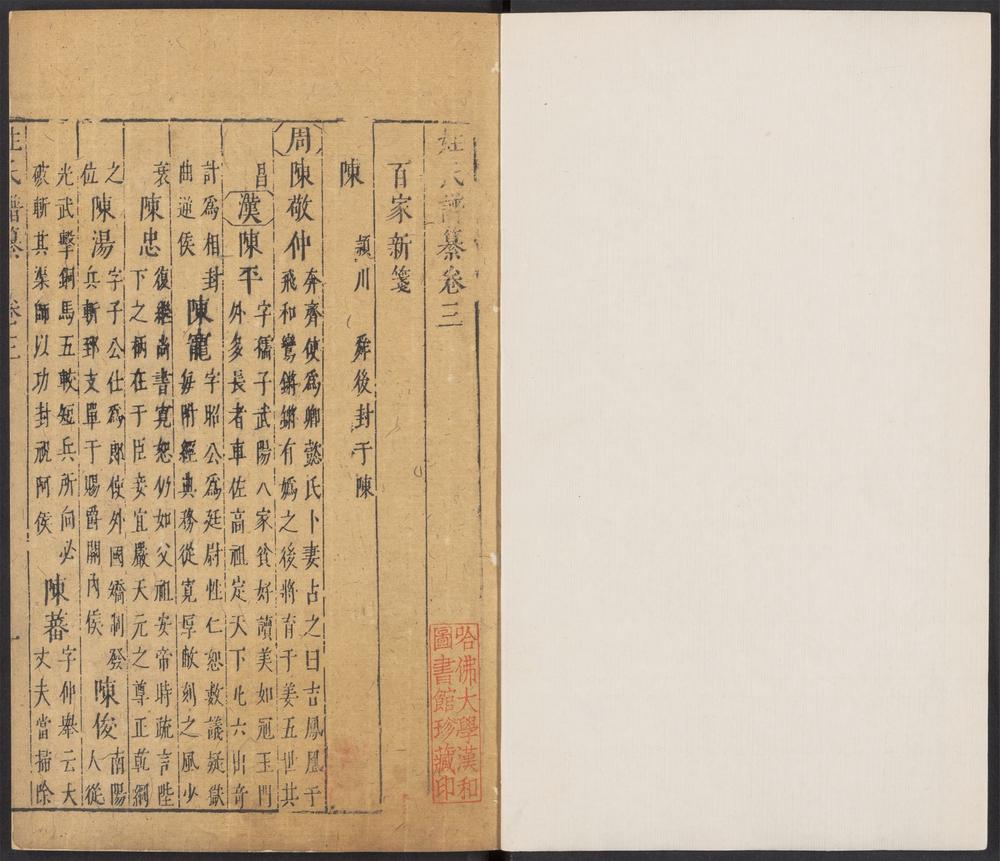 姓氏譜纂卷三
百家新箋
陳 潁川 舜後封于陳
周 陳敬仲 奔齊使爲卿懿氏卜妻占之曰吉鳳凰于
飛和鸞鏘鏘有媯之後將育于姜五世其
昌 漢 陳平 字孺子武陽人家貧好讀美如冠玉門
外多長者車佐高祖定天下凡六出奇
計爲相封
曲逆侯 陳寵 字昭公爲廷尉性仁恕數議疑獄
每附經典務從寬厚㪣刻之風少
衰 陳忠 復繼尚書寬恕仍如父祖安帝時疏言陛
下之柄在于臣妾宜嚴天元之尊正乾綱
之
位 陳湯 字子公仕爲郎使外國矯制發
兵斬郅支單于賜爵關內侯 陳俊 南陽
人從
光武擊銅馬五較短兵所向必
破斬其渠帥以功封祝阿侯 陳蕃 字仲舉云大
丈夫當掃除
姓氏譜纂 卷三 一
哈佛大學漢和
圖書館珍藏印